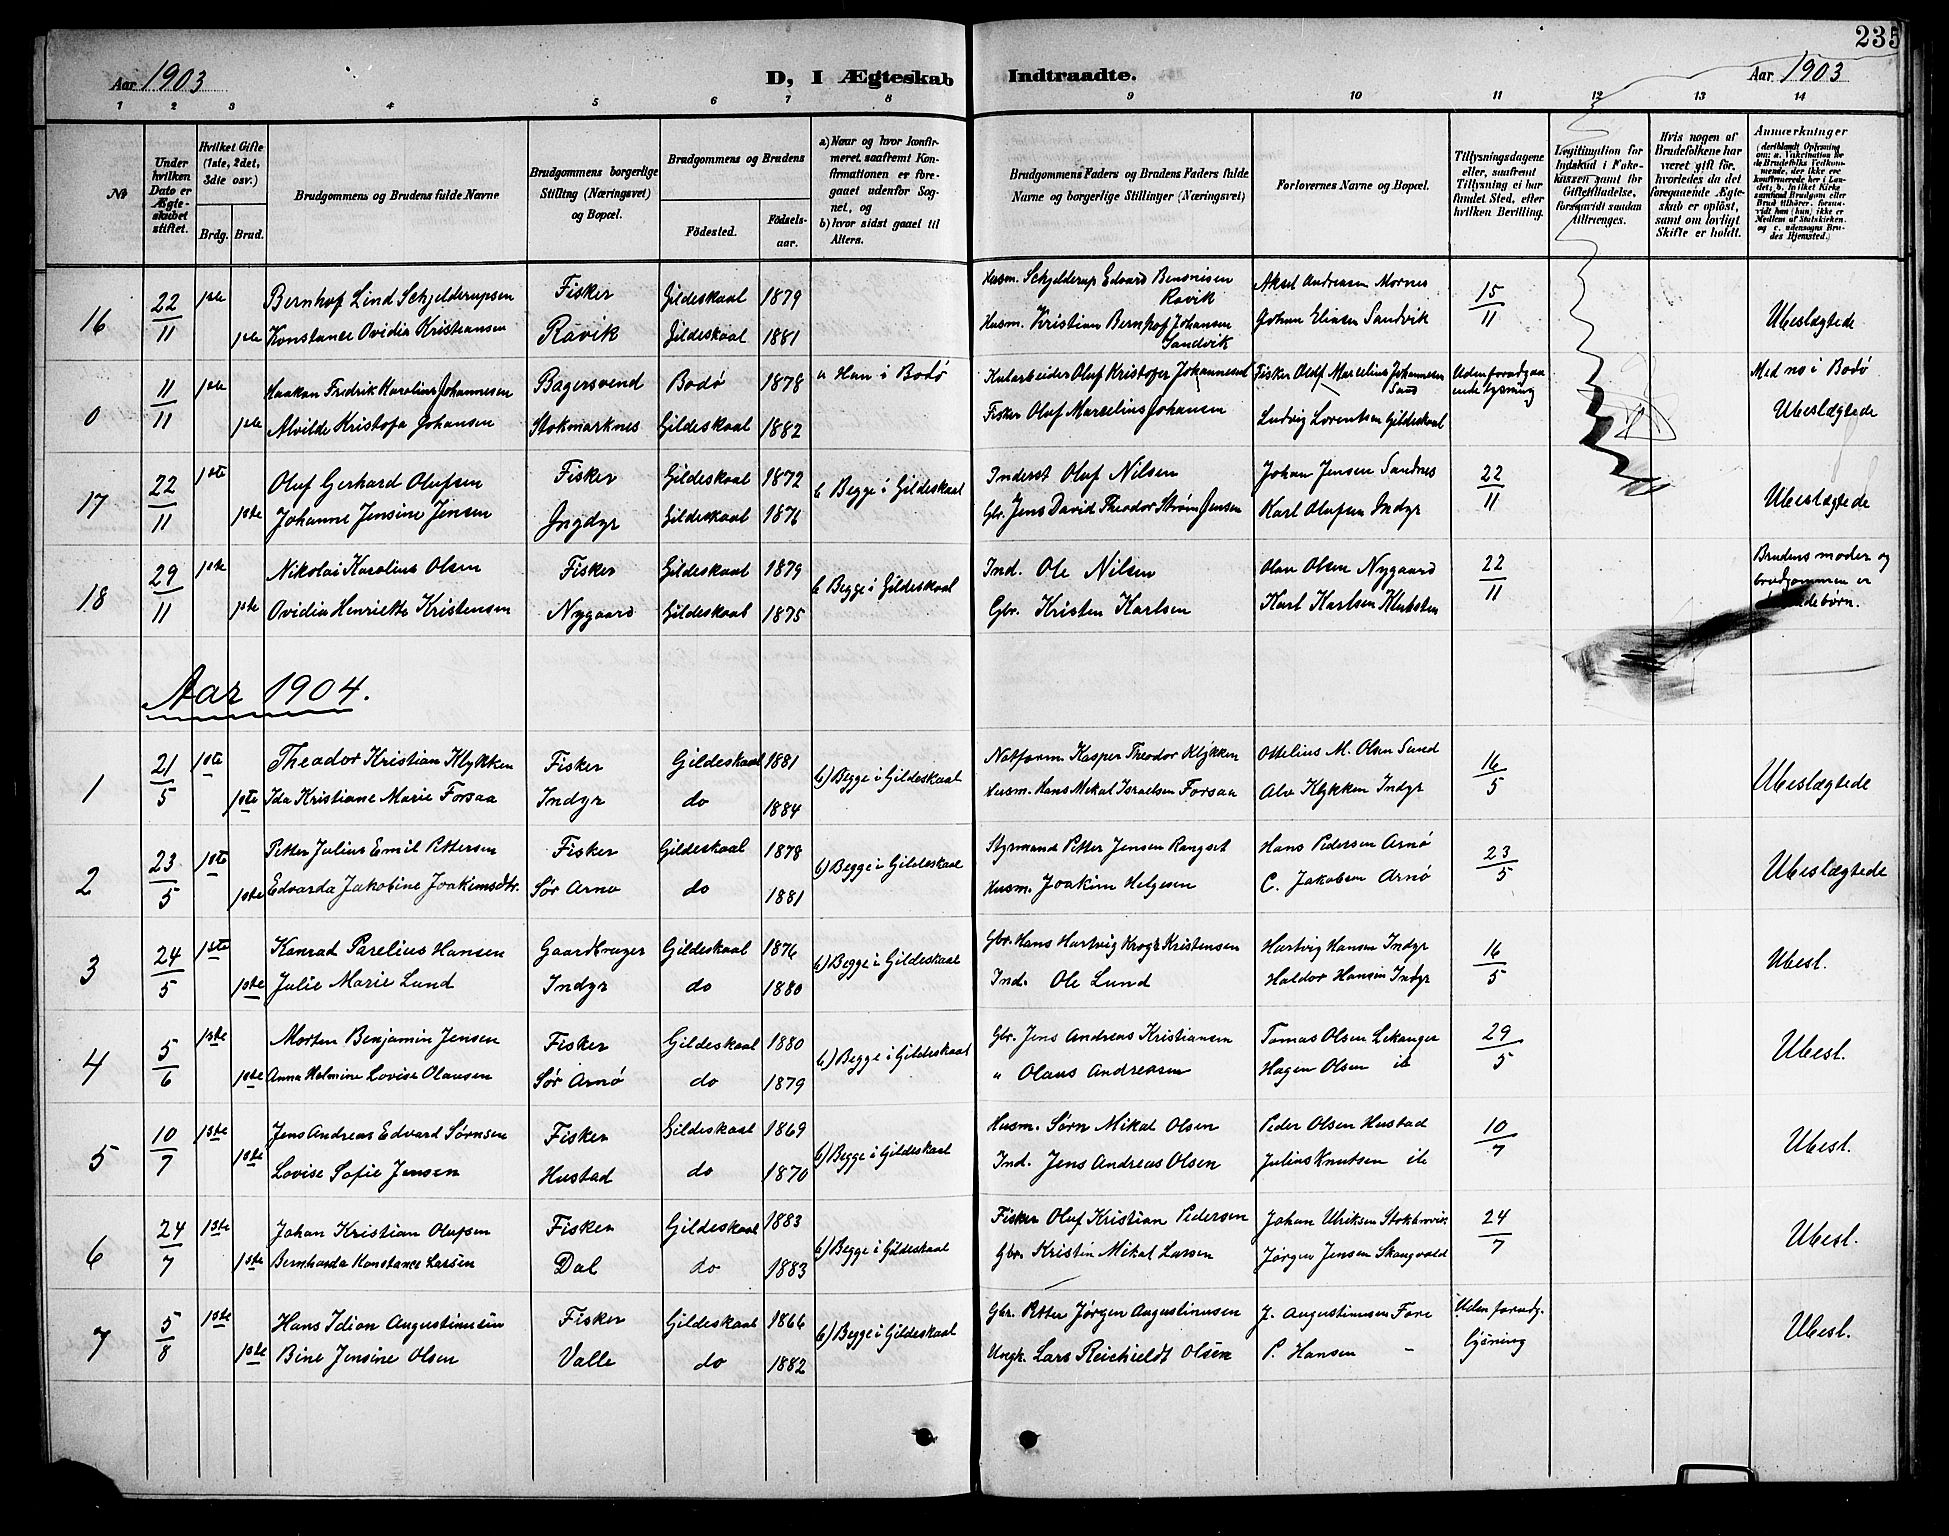 235
Aar 1903 D, I Ægteskab Indtraadte. Aar 1903
1 2 3 4 5 6 7 8 9 10 11 12 13 14
№ | Under hvilken Dato er Ægteskabet stiftet. | Hvilket Gifte (1ste, 2det, 3die osv.) Brdg. Brud. | Brudgommens og Brudens fulde Navne | Brudgommens borgerlige Stilling (Næringsvei) og Bopæl. | Brudgommens og Brudens Fødested. Fødselsaar. | a) Naar og hvor konfirmeret, saafremt Konfirmationen er foregaaet udenfor Sognet, og b) hvor sidst gaaet til Alters. | Brudgommens Faders og Brudens Faders fulde Navne og borgerlige Stillinger (Næringsvei) | Forlovernes Navne og Bopæl. | Tillysningsdagene eller, saafremt Tillysning ei har fundet Sted, efter hvilken Bevilling. | Legitimation for Indskud i Enkekassen samt for Giftetilladelse, forsaavidt saadan tiltrænges. | Hvis nogen af Brudefolkene har været gift før, hvorledes da det foregaaende Ægteskab er opløst, samt om lovligt Skifte er holdt. | Anmerkninger (deriblandt Oplysning om: a. Vakcination for de Brudefolks Vedkommende, der ikke ere konfirmerede her i Landet; b. hvilket Kirkesamfund Brudgom eller Brud tilhører, forsaavidt han (hun) ikke er Medlem af Statskirken, og c. udensogns Brudes Hjemsted.)
16 | 22/11 | 1ste | Bernhof Lind Schjelderupsen | Fisker | Gildeskaal | 1879 | Husm. Schjelderup Edvard Benonisen Ravik | Aksel Andreasen Mornes | 15/11 | Ubeslægtede
1ste | Konstance Ovidia Kristiansen | Ravik | Gildeskaal | 1881 | Husm. Kristian Bernhof Johansen Sandvik | Johan Eliasen Sandvik
0 | 11/11 | 1ste | Haakon Fredrik Karolius Johannesen | Bagersvend | Bodø | 1878 | a Han i Bodø | Oluf Kristofer Johannesen | Fisker Oluf Marselius Johannesen Sand | Uden foregaaende lysning | Med no i Bodø
1ste | Alvilde Kristofa Johansen | Stokmarknes | Gildeskaal | 1882 | Fisker Oluf Marselius Johansen | Ludvig Lorentsen Gildeskaal | Ubeslægtede
17 | 22/11 | 1ste | Oluf Gerhard Olufsen | Fisker | Gildeskaal | 1872 | b Begge i Gildeskaal | Inderst Oluf Nilsen | Johan Jensen Sandnes | 22/11 | Ubeslægtede
1ste | Johanne Jensine Jensen | Ingdyr | Gildeskaal | 1876 | Gbr. Jens David Theodor Strøm Jensen | Karl Olufsen Indyr
18 | 29/11 | 1ste | Nikolai Karolius Olsen | Fisker | Gildeskaal | 1879 | b Begge i Gildeskaal | Ind. Ole Nilsen | Olav Olsen Nygaard | 22/11 | Brudens moder og brudgommen er børn.
1ste | Ovidia Henriette Kristensen | Nygaard | Gildeskaal | 1875 | Gbr. Kristen Karlsen | Karl Karlsen
Aar 1904.
1 | 21/5 | 1ste | Theodor Kristian Klykken | Fisker | Gildeskaal | 1881 | b) Begge i Gildeskaal | Kasper Theodor Klykken | Ottelius M. Olsen Sund | 16/5 | Ubeslægtede
1ste | Ida Kristiane Marie Forsaa | Indyr | do | 1884 | Husm. Hans Mikal Israelsen Forsaa | Alv Klykken Indyr
2 | 23/5 | 1ste | Petter Julius Emil Pettersen | Fisker | Gildeskaal | 1878 | b) Begge i Gildeskaal | Styrmand Petter Jensen Rangset | Hans Pedersen Arnø | 23/5 | Ubeslægtede
1ste | Edvarda Jakobine Joakimsdtr. | Sør Arnø | do | 1881 | Husm. Joakim Helgesen | C. Jakobsen Arnø
3 | 24/5 | 1ste | Konrad Parelius Hansen | Gaardbruger | Gildeskaal | 1876 | b) Begge i Gildeskaal | Gbr. Hans Hartvig Krogh Kristensen | Hartvig Hansen Indyr | 16/5 | Ubesl.
1ste | Julie Marie Lund | Indyr | do | 1880 | Ind. Ole Lund | Haldor Hansen Indyr
4 | 5/6 | 1ste | Morten Benjamin Jensen | Fisker | Gildeskaal | 1880 | b) Begge i Gildeskaal | Gbr. Jens Andreas Kristiansen | Tomas Olsen Lekanger | 29/5 | Ubesl.
1ste | Anna Helmine Lovise Olausen | Sør Arnø | do | 1879 | " Olaus Andreasen | Hagen Olsen ib
5 | 10/7 | 1ste | Jens Andreas Edvard Sørnsen | Fisker | Gildeskaal | 1869 | b) Begge i Gildeskaal | Husm. Sørn Mikal Olsen | Peder Olsen Hustad | 10/7 | Ubesl.
1ste | Lovise Sofie Jensen | Hustad | do | 1870 | Ind. Jens Andreas Olsen | Julius Knutsen ib
6 | 24/7 | 1ste | Johan Kristian Olufsen | Fisker | Gildeskaal | 1883 | b) Begge i Gildeskaal | Fisker Oluf Kristian Pedersen | Johan Ulriksen | 24/7 | Ubesl.
1ste | Bernharda Konstance Larsen | Dal | do | 1883 | Gbr. Kristin Mikal Larsen | Jørgen Jensen Skaugvold
7 | 5/8 | 1ste | Hans Idion Augustinusen | Fisker | Gildeskaal | 1866 | b) Begge i Gildeskaal | Gbr. Petter Jørgen Augustinusen | J. Augustinusen Fore | Uden foradg. lysning | Ubesl.
1ste | Bine Jensine Olsen | Valle | do | 1882 | Ungk. Lars Reichieldt Olsen | P. Hansen -